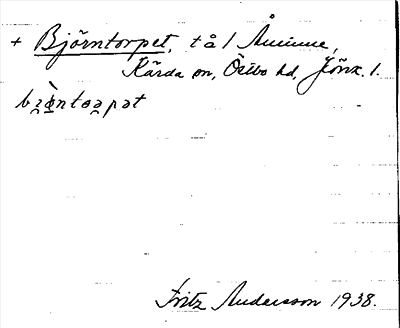 + Björntorpet, t å 1 Åminne,
Kärda sn, Östbo hd, Jönk. l.
Fritz Andersson 1938.